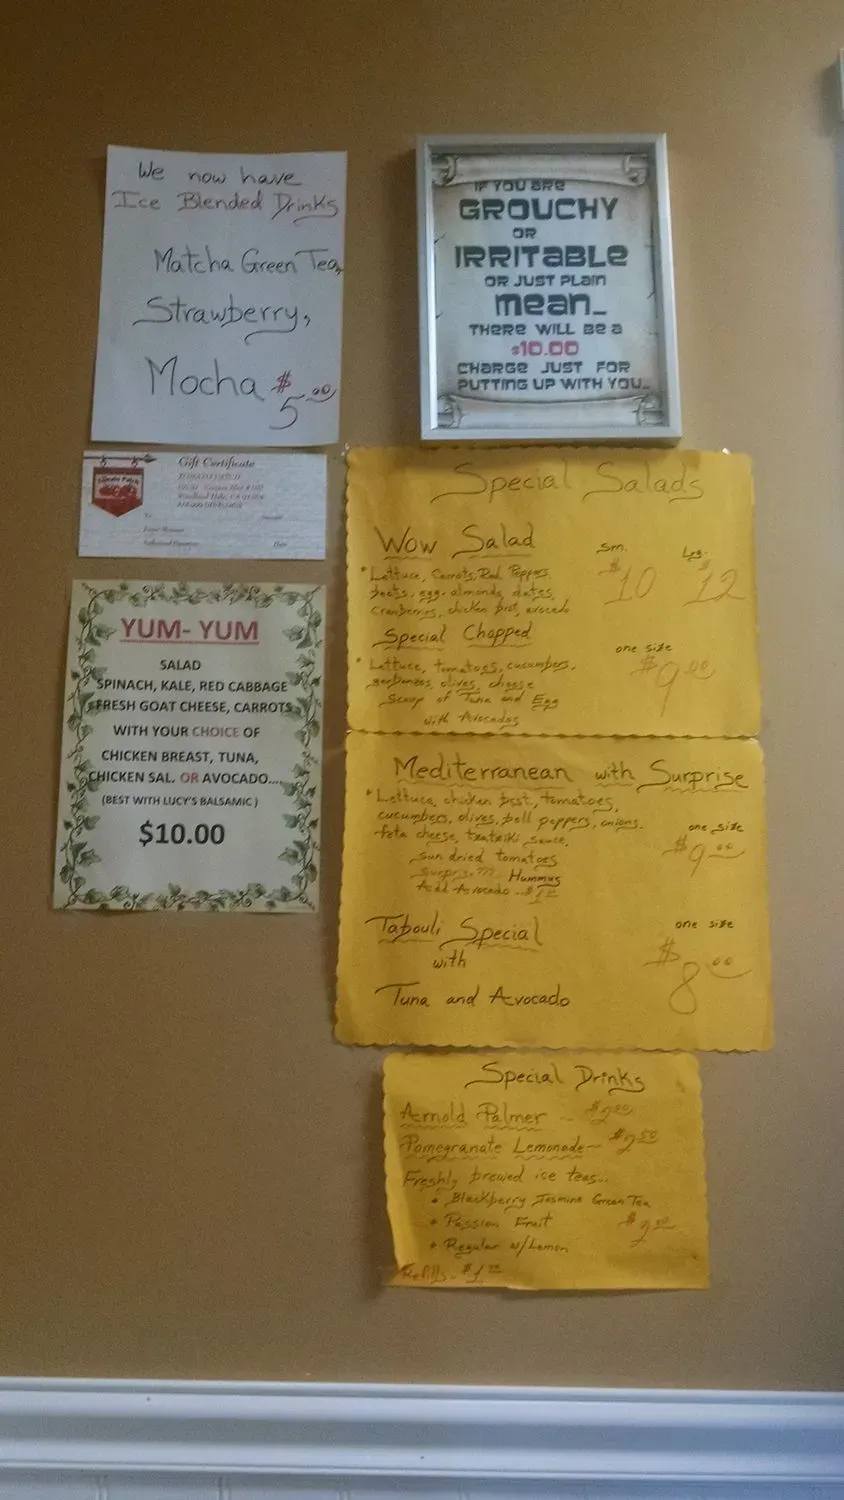 We now have
Ice Blended Drinks
Matcha Green Tea,
Strawberry,
Mocha $5.00
IF YOU ARE
GROUCHY
OR
IRRITABLE
OR JUST PLAIN
MEAN...
THERE WILL BE A
$10.00
CHARGE JUST FOR
PUTTING UP WITH YOU...
Gift Certificate
Tomato Patch
Woodland Hills, CA
To
Amount
Date
YUM- YUM
SALAD
SPINACH, KALE, RED CABBAGE
FRESH GOAT CHEESE, CARROTS
WITH YOUR CHOICE OF
CHICKEN BREAST, TUNA,
CHICKEN SAL. OR AVOCADO....
(BEST WITH LUCY'S BALSAMIC )
$10.00
Special Salads
Wow Salad Sm. $10 Lrg. $12
* Lettuce, Carrots, Red Peppers,
beets, egg, almonds, dates,
cranberries, chicken brst, avocado
Special Chopped one size $9.00
* Lettuce, tomatoes, cucumbers,
garbanzos, olives, cheese
Scoop of Tuna and Egg
with Avocados
Mediterranean with Surprise
* Lettuce, chicken brst, tomatoes,
cucumbers, olives, bell peppers, onions,
feta cheese, tzatziki sauce, one size $9.00
sun dried tomatoes
surprise??? Hummus
Add Avocado ..$1.00
Tabouli Special one size $8.00
with
Tuna and Avocado
Special Drinks
Arnold Palmer - $2.50
Pomegranate Lemonade - $2.50
Freshly brewed ice teas...
• Blackberry Jasmine Green Tea
• Passion Fruit $2.00
• Regular w/Lemon
Refills - $1.00